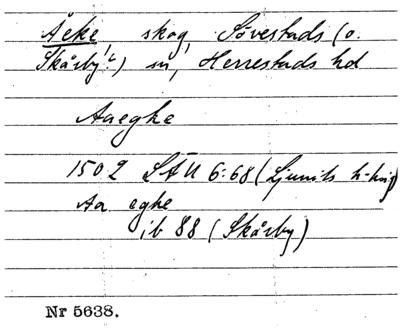 Åeke, skog, Sövestads (o.
Skårby?) sn, Herrestads hd
Aaeghe
1502 SÄU 6:68 (Ljunits h-kung
Aa eghe
ib 88 (Skårby)
Nr 5638.